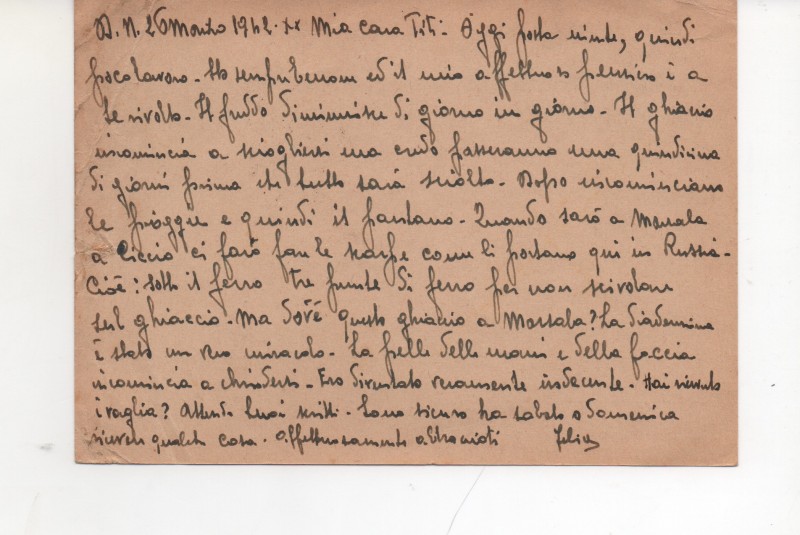 D. N. 26 Marzo 1942. XX Mia cara Titi - Oggi posta niente, quindi
poco lavoro - Sto sempre benone ed il mio affettuoso pensiero è a
te rivolto - Il freddo diminuisce di giorno in giorno - Il ghiaccio
incomincia a sciogliersi ma credo passeranno una quindicina
di giorni prima che tutto sarà sciolto - Dopo incominciano
le piogge e quindi il pantano - Quando sarò a Marsala
a Ciccio ci farò fare le scarpe come li portano qui in Russia -
Cioè: sotto il ferro tre punte di ferro per non scivolare
sul ghiaccio - Ma dov'è questo ghiaccio a Marsala? La diadermina
è stato un vero miracolo - La pelle delle mani e della faccia
incomincia a chiudersi - Ero diventato veramente indecente - Hai ricevuto
i vaglia? Attendo tuoi scritti - Sono sicuro ha sabato o domenica
ricevere qualche cosa - Affettuosamente abbracioti